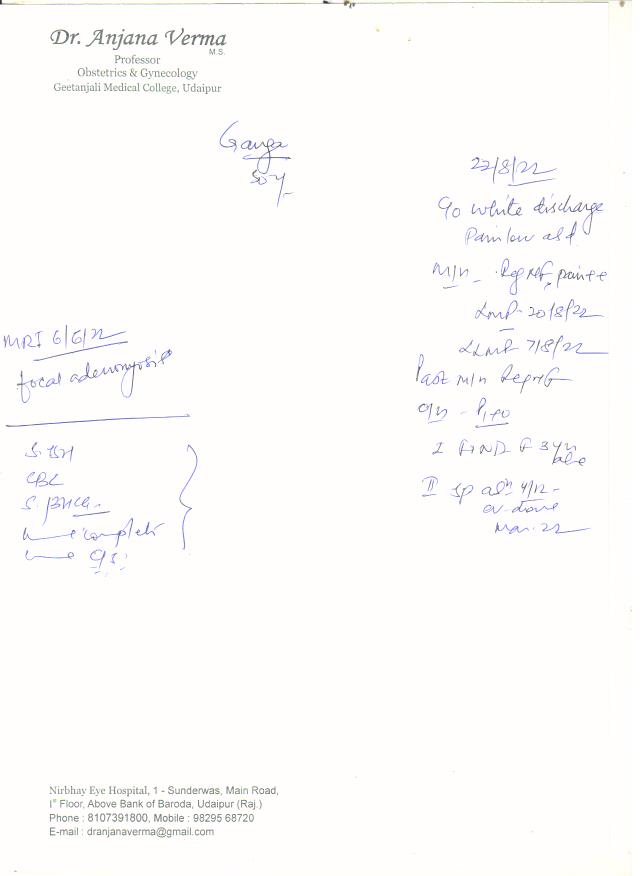 Dr. Anjana Verma
M.S.
Professor
Obstetrics & Gynecology
Geetanjali Medical College, Udaipur
Ganga
27/8/22
C/o White discharge
Pain low abd
M/H - Reg
LMP - 20/8/22
LLMP 7/8/22
Past M/H Reg
O/H -
I FTND F 3 yr
II
Mar. 22
MRI 6/6/22
focal adenomyosis
S. TSH
CBC
S. βHCG
Urine complete
Urine C/S
Nirbhay Eye Hospital, 1 - Sunderwas, Main Road,
Iˢᵗ Floor, Above Bank of Baroda, Udaipur (Raj.)
Phone : 8107391800, Mobile : 98295 68720
E-mail : dranjanaverma@gmail.com